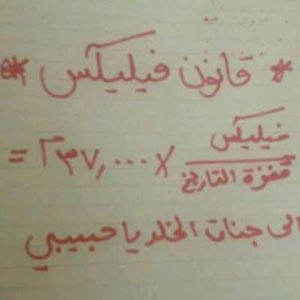 * قانون فيليكس *
فيليكس
قفزة التاريخ × ٣٧,٠٠٠ م =
الى جنات الخلد يا حبيبي